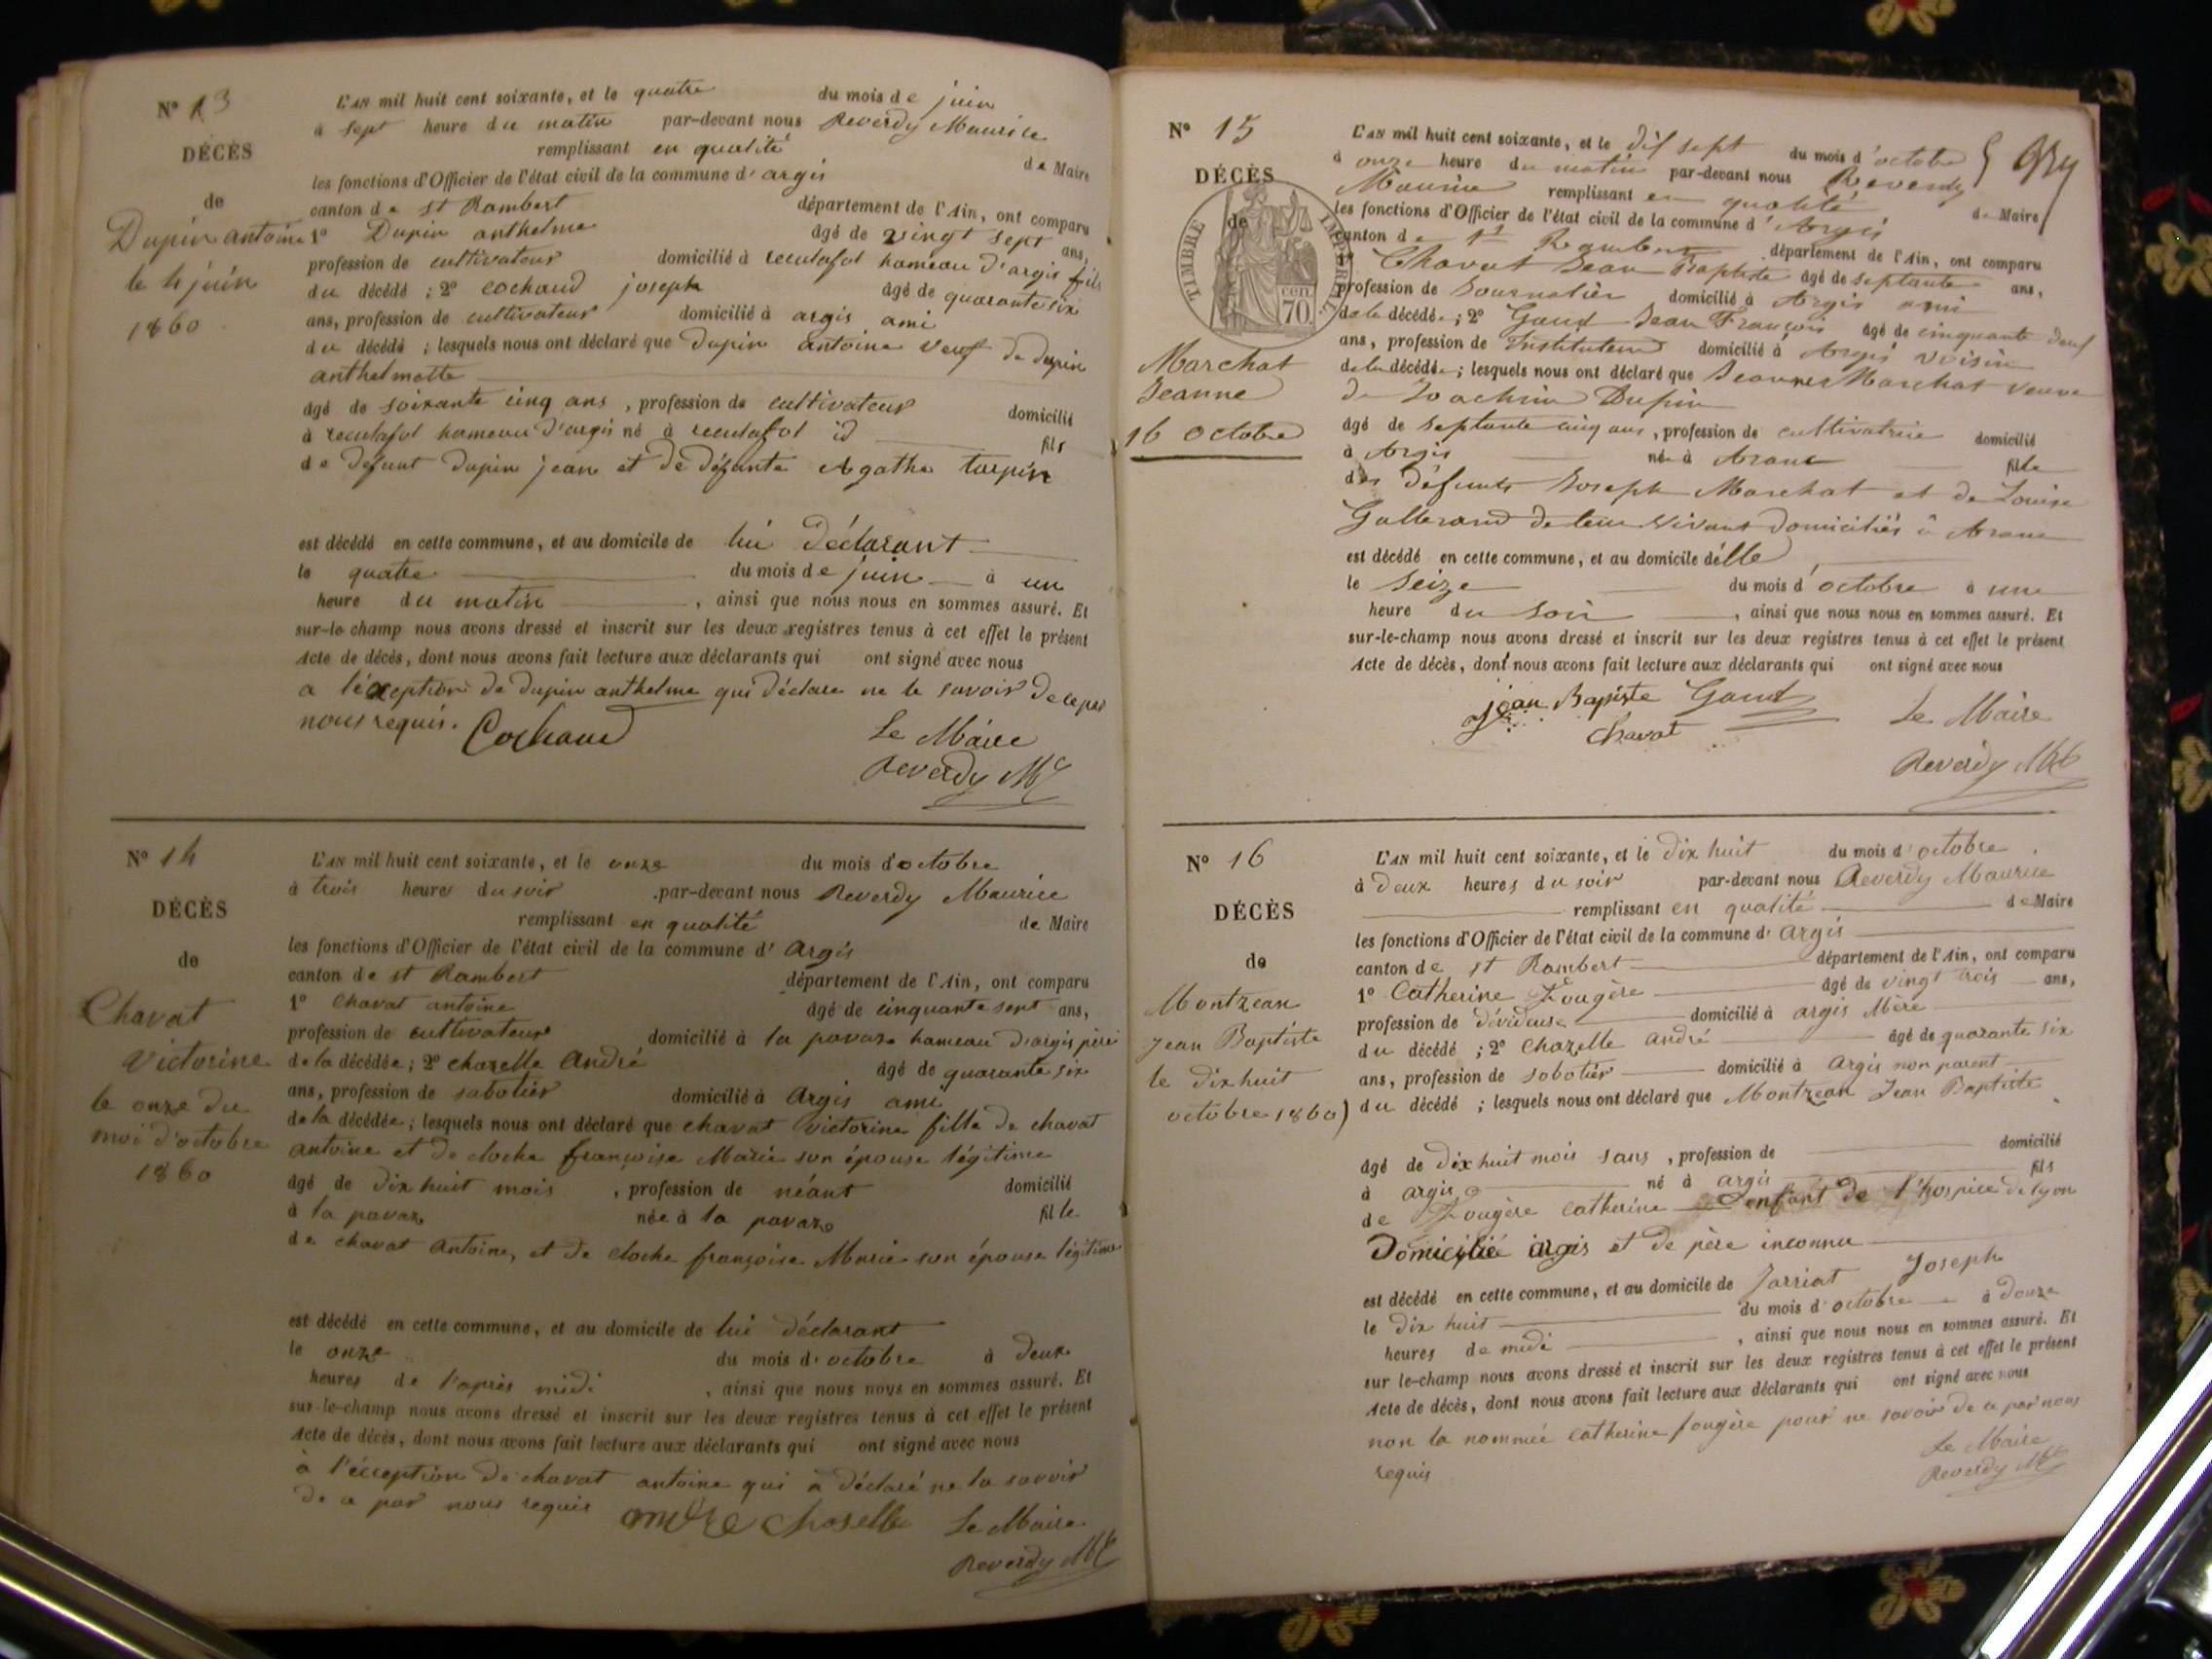 N° 13
DÉCÈS
de
Dupin antoine
le 4 juin
1860
L'AN mil huit cent soixante, et le quatre du mois de juin
à sept heure du matin par-devant nous Reverdy Maurice
remplissant en qualité de Maire
les fonctions d'Officier de l'état civil de la commune d'argis
canton de st Rambert département de l'Ain, ont comparu
1° Dupin anthelme âgé de vingt sept ans,
profession de cultivateur domicilié à reculafol hameau d'argis fils
du décédé ; 2° cochaud joseph âgé de quarante six
ans, profession de cultivateur domicilié à argis ami
du décédé ; lesquels nous ont déclaré que Dupin antoine veuf de dupin
anthelmette
âgé de soixante cinq ans , profession de cultivateur domicilié
à reculafol hameau d'argis né à reculafol id fils
de defunt dupin jean et de défunte Agathe turpin
est décédé en cette commune, et au domicile de lui déclarant
le quatre du mois de juin à un
heure du matin , ainsi que nous nous en sommes assuré. Et
sur-le-champ nous avons dressé et inscrit sur les deux registres tenus à cet effet le présent
Acte de décès, dont nous avons fait lecture aux déclarants qui ont signé avec nous
a l'éxception de dupin anthelme qui déclare ne le savoir de ce par
nous requis. Cochaud Le Maire
Reverdy Mce
N° 14
DÉCÈS
de
Chavat
Victorine
le onze du
moi d'octobre
1860
L'AN mil huit cent soixante, et le onze du mois d'octobre
à trois heures du soir par-devant nous Reverdy Maurice
remplissant en qualité de Maire
les fonctions d'Officier de l'état civil de la commune d'Argis
canton de st Rambert département de l'Ain, ont comparu
1° Chavat antoine âgé de cinquante sept ans,
profession de cultivateur domicilié à la pavaz hameau d'argis père
de la décédée ; 2° chazelle André âgé de quarante six
ans, profession de sabotier domicilié à Argis ami
de la décédée ; lesquels nous ont déclaré que chavat Victorine fille de chavat
antoine et de cloche françoise Marie son épouse légitime
âgé de dix huit mois , profession de néant domicilié
à la pavaz née à la pavaz fille
de chavat Antoine, et de cloche françoise Marie son épouse légitime
est décédé en cette commune, et au domicile de lui déclarant
le onze du mois d'octobre à deux
heures de l'après midi , ainsi que nous nous en sommes assuré. Et
sur-le-champ nous avons dressé et inscrit sur les deux registres tenus à cet effet le présent
Acte de décès, dont nous avons fait lecture aux déclarants qui ont signé avec nous
à l'éxception de chavat antoine qui a déclaré ne la savoir
de ce par nous requis andre chaselle Le Maire
Reverdy Mce
N° 15
DÉCÈS
de
TIMBRE IMPÉRIAL
70 cen.
Marchat
Jeanne
16 octobre
L'AN mil huit cent soixante, et le dix sept du mois d'octobre
à onze heure du matin par-devant nous Reverdy
Maurice remplissant en qualité de Maire
les fonctions d'Officier de l'état civil de la commune d'Argis
canton de St Rambert département de l'Ain, ont comparu
1° Chavat Jean Baptiste âgé de septante ans,
profession de Journalier domicilié à Argis ami
de la décédée ; 2° Gaud Jean François âgé de cinquante deux
ans, profession de Instituteur domicilié à Argis voisin
de la décédée ; lesquels nous ont déclaré que Jeanne Marchat veuve
de Joachim Dupin
âgé de septante cinq ans , profession de cultivatrice domicilié
à Argis née à Aranc fille
des défunts Joseph Marchat et de Louise
Gallerand de leur vivant domiciliés à Aranc
est décédé en cette commune, et au domicile d'elle
le Seize du mois d'octobre à une
heure du soir , ainsi que nous nous en sommes assuré. Et
sur-le-champ nous avons dressé et inscrit sur les deux registres tenus à cet effet le présent
Acte de décès, dont nous avons fait lecture aux déclarants qui ont signé avec nous
jean Bapiste Gaud Le Maire
Chavat
Reverdy Mce
N° 16
DÉCÈS
de
Montzean
Jean Baptiste
le dix huit
octobre 1860
L'AN mil huit cent soixante, et le dix huit du mois d'octobre
à deux heures du soir par-devant nous Reverdy Maurice
remplissant en qualité de Maire
les fonctions d'Officier de l'état civil de la commune d'argis
canton de st Rambert département de l'Ain, ont comparu
1° Catherine Fougère âgé de vingt trois ans,
profession de dévideuse domicilié à argis Mère
du décédé ; 2° Chazelle André âgé de quarante six
ans, profession de sabotier domicilié à Argis non parent
du décédé ; lesquels nous ont déclaré que Montzean Jean Baptiste
âgé de dix huit mois sans , profession de domicilié
à argis né à argis fils
de Fougère Catherine enfant de l'hospice de lyon
Domicilié argis et de père inconnu
est décédé en cette commune, et au domicile de Jarriat Joseph
le dix huit du mois d'octobre à douze
heures de midi , ainsi que nous nous en sommes assuré. Et
sur le-champ nous avons dressé et inscrit sur les deux registres tenus à cet effet le présent
Acte de décès, dont nous avons fait lecture aux déclarants qui ont signé avec nous
non la nommée Catherine fougère pour ne savoir de ce par nous
requis Le Maire
Reverdy Mce